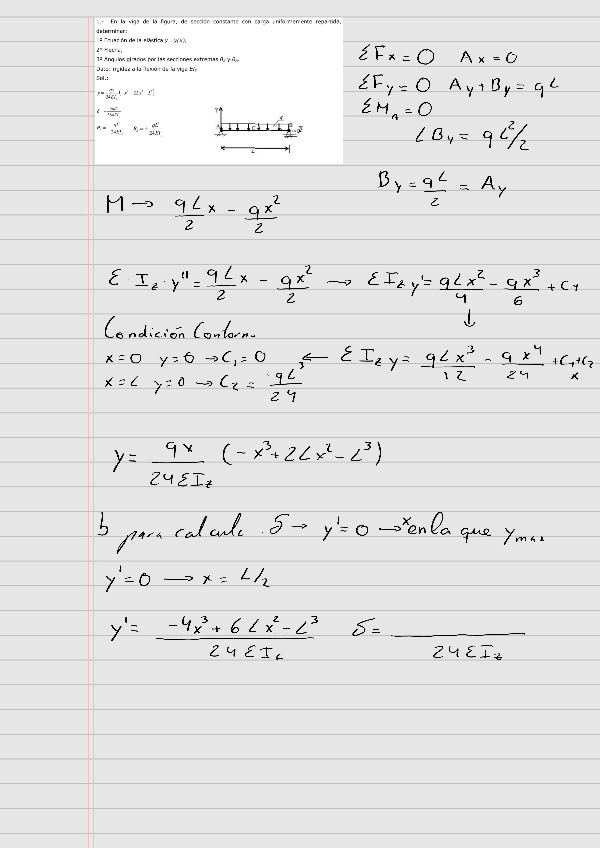 1.- En la viga de la figura, de sección constante con carga uniformemente repartida,
determinar:
1º Ecuación de la elástica y=y(x),
2º Flecha,
3º Ángulos girados por las secciones extremas θA y θB.
Dato: rigidez a la flexión de la viga EIz
Sol.:
ΣFx = 0 Ax = 0
ΣFy = 0 Ay + By = qL
ΣMA = 0
LBy = qL²/2
By = qL/2 = Ay
M → qL/2 x - qx²/2
Ɛ · Iz · y'' = qL/2 x - qx²/2 → ƐIz y' = qLx²/4 - qx³/6 + C1
↓
Condición Contorno
x=0 y=0 → C1 = 0 ← ƐIz y = qLx³/12 - qx⁴/24 + C1 + C2
x
x=L y=0 → C2 = qL³/24
y = qx/24ƐIz (-x³ + 2Lx² - L³)
b para calculo δ → y' = 0 → x en la que y max
y' = 0 → x = L/2
y' = -4x³ + 6Lx² - L³/24ƐIz δ = /24ƐIz